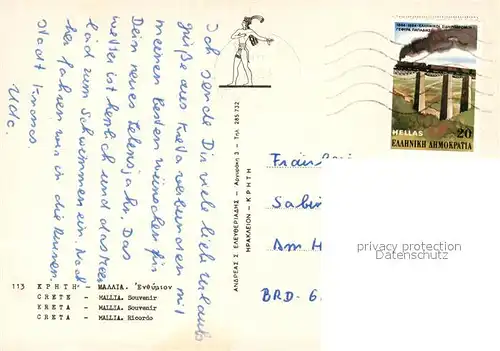 Ich sende Dir viele liebe Urlaubs
grüße aus Kreta verbunden mit
meinen besten Wünschen für
Dein neues Lebensjahr. Das
Wetter ist herrlich und das Meer
läd zum Schwimmen ein. Nach
her fahren wir in die Ruinen
stadt Knossos.
Udo.
113 ΚΡΗΤΗ - ΜΑΛΛΙΑ. Ἐνθύμιον
CRETE - MALLIA. Souvenir
KRETA - MALLIA. Souvenir
CRETA - MALLIA. Ricordo
ΑΝΔΡΕΑΣ Σ. ΕΛΕΥΘΕΡΙΑΔΗΣ - Τηλ. 285 732
ΗΡΑΚΛΕΙΟΝ - ΚΡΗΤΗ
1884-1984 ΕΛΛΗΝΙΚΟΙ ΣΙΔΗΡΟΔΡΟΜΟΙ
ΓΕΦΥΡΑ ΠΑΠΑΔΙΑΣ
HELLAS 20
ΕΛΛΗΝΙΚΗ ΔΗΜΟΚΡΑΤΙΑ
Fräulein
Sabi
Am H
BRD-6
privacy protection
Datenschutz